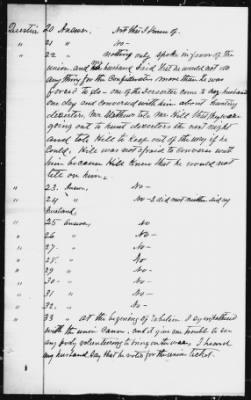 Question 20 Answer. Not that I know of.
" 21 " No-
" 22 " Nothing only spoke in favor of the
union and My husband said that he would not do
anything for the Confederates more than he was
forced to do - one of the deserter come to my husband
one day and conversed with him about hunting
deserters, Mr Mathews told Mr Hill that they were
going out to hunt deserters the next night
and told Hill to keep out of the way if he
could. Hill was not afraid to converse with
him because Hill knew that he would not
tell on him.
" 23. Answer, No-
" 24 " No- I did not neither did my
husband,
" 25 Answer, No
" 26 " No
" 27 " No-
" 28. " No
" 29 " No-
" 30 " No-
" 31 " No-
" 32. " No-
" 33 " at the begining of Rebelion I sympathized
with the union Cause, and it give me trouble to see
any body volunteering to bring on the war, I heard
my husband say that he voted for the union ticket.